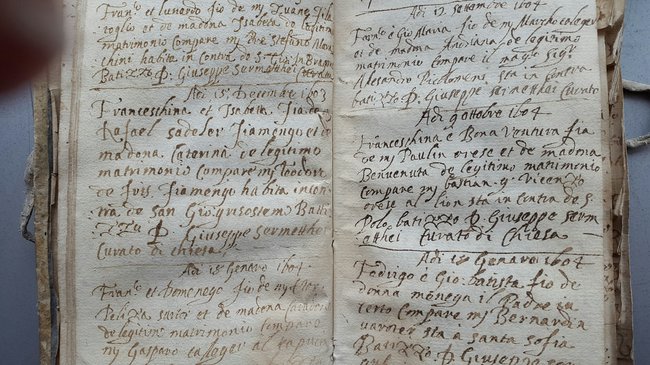 Fran.co et lunardo fio de mj Zuane
et de madona Isabeta de legitimo
matrimonio Compare mj Pre Stefano
habita in Contra de S.
Batizzo P. Giuseppe Sermathei Curato
Adi 15 Decembre 1603
Franceschina et Isabetta fia de mj
Rafael Sadeler fiamengo et de
madona Caterina de legitimo
matrimonio Compare mj Teodoro
de fiamengo habita in con
tra de San Gio: grisostemo Batti
zzo P. Giuseppe Sermatthei
Curato di chiesa
Adi 18 Genaro 1604
Fran.co et Domenego fio de mj
sartor et de madona
de legitimo matrimonio Compare
mj Gasparo
Adi 12 Settem. de 1604
Fran.co e Gio Maria fio de mj Marcho
et de madona Andriana de legitimo
matrimonio Compare il mag.co Sig.r
Alesandro sta in
batizzo P. Giuseppe Sermathei Curato
Adi 9 ottobre 1604
Franceschina e Bona Ventura fia
de mj Paulin orese et de madona
Benvenuta de legitimo matrimonio
Compare mj bastian q. Vicenzo
orese al lion sta in Contra de S.
Polo batizzo P. Giuseppe Serm
atthei Curato di Chiesa
Adi 18 Genaro 1604
Rodrigo e Gio: batista fio de
donna menega il Padre in
certo Compare mj Bernardin
sta a santa sofia
Batizzo P. Giuseppe